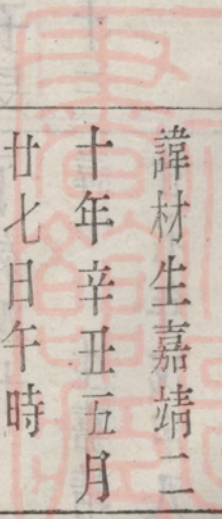 諱材生嘉靖二
十年辛丑五月
廿七日午時